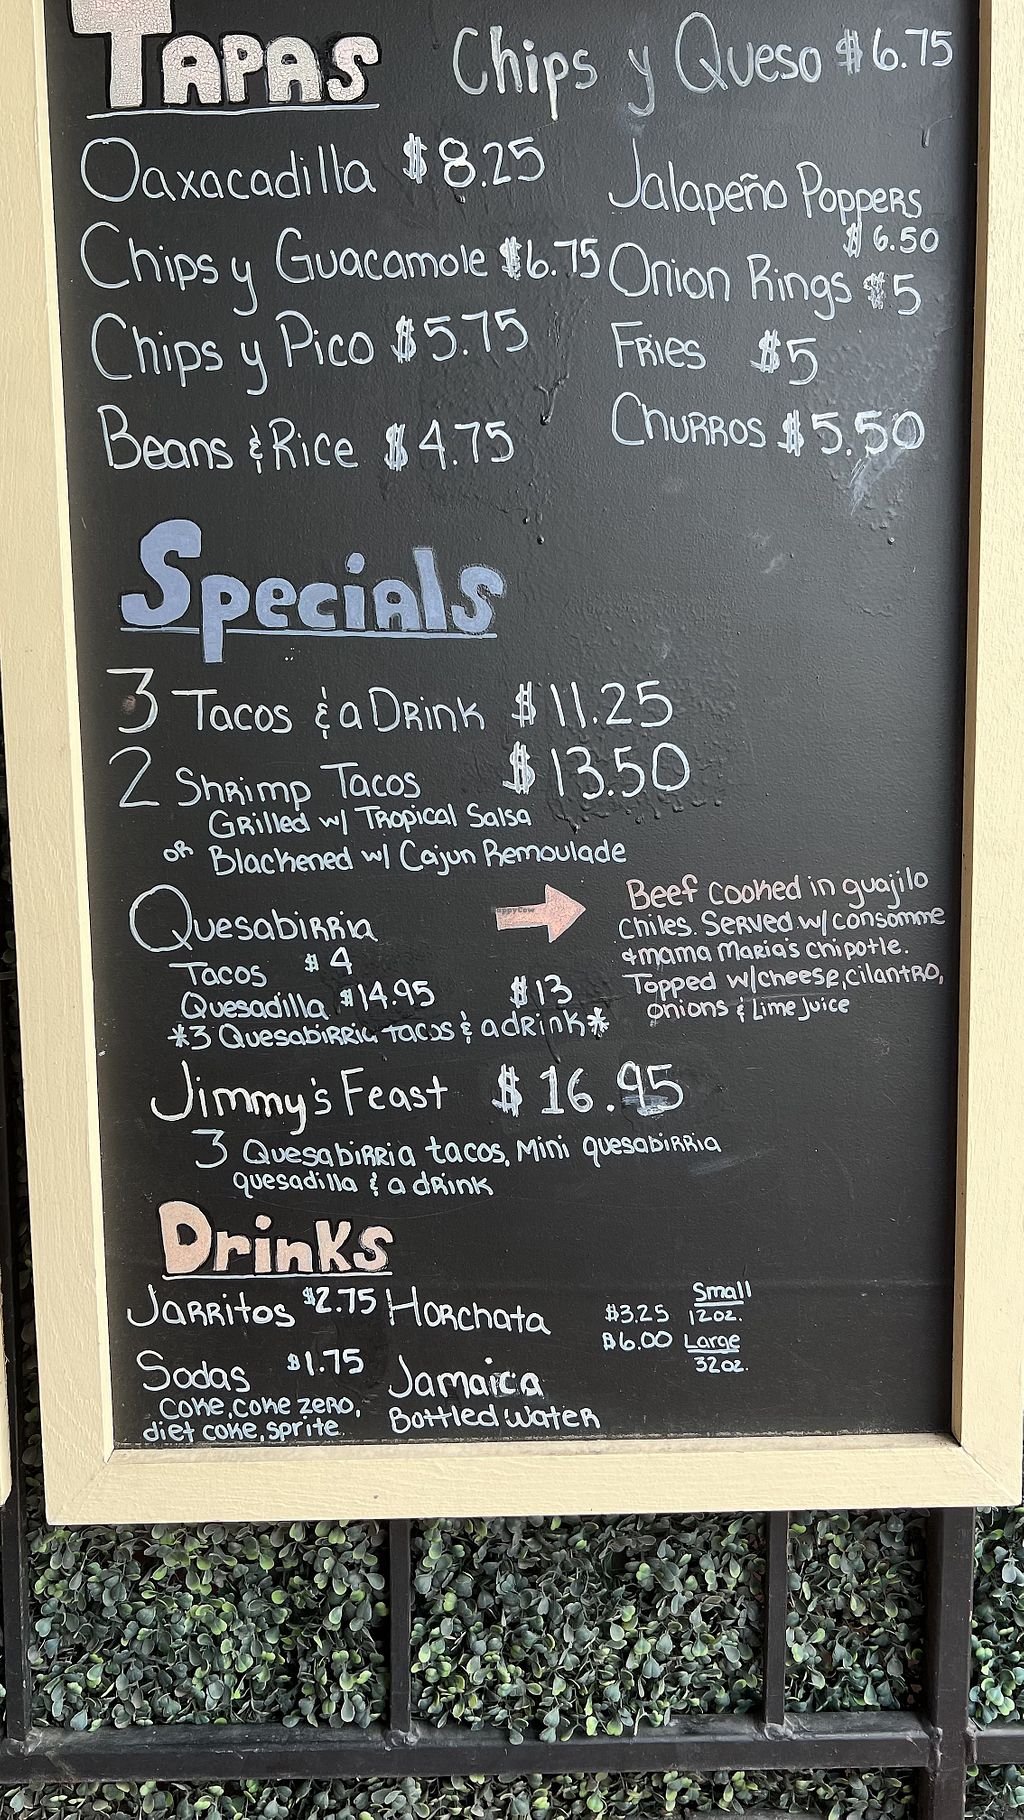 TAPAS
Chips y Queso $6.75
Oaxacadilla $8.25
Chips y Guacamole $6.75
Chips y Pico $5.75
Beans & Rice $4.75
Jalapeño Poppers
$6.50
Onion Rings $5
Fries $5
Churros $5.50
Specials
3 Tacos & a Drink $11.25
2 Shrimp Tacos $13.50
Grilled w/ Tropical Salsa
or Blackened w/ Cajun Remoulade
Quesabirria
Tacos $4
Quesadilla $14.95 $13
*3 Quesabirria tacos & a drink*
Beef cooked in guajilo
chiles. Served w/ consomme
& mama Maria's chipotle.
Topped w/cheese, cilantro,
onions & Lime juice
Jimmy's Feast $16.95
3 Quesabirria tacos, mini quesabirria
quesadilla & a drink
Drinks
Jarritos $2.75
Sodas $1.75
coke, coke zero,
diet coke, sprite
Horchata
Jamaica
Bottled water
Small
$3.25 12oz.
$6.00 Large
32oz.